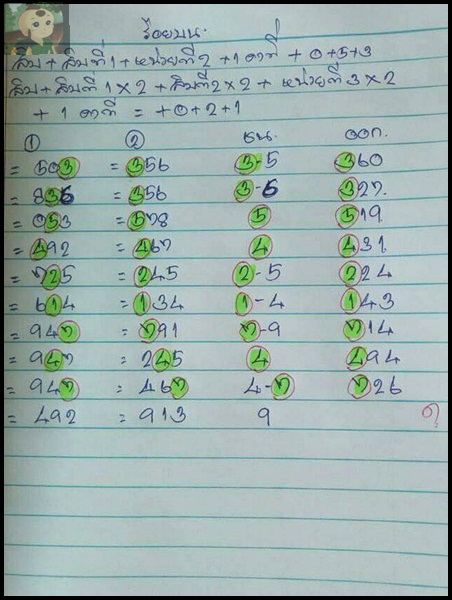 ร้อยบน
สิบ + สิบที่ 1 + หน่วยที่ 2 + 1 คาที่ + 0+5+3
สิบ + สิบที่ 1 x 2 + สิบที่ 2 x 2 + หน่วยที่ 3 x 2
+ 1 คาที่ = +0+2+1
① ② ชน. ออก.
= 503 = 356 3-5 360
= 836 = 356 3-6 327.
= 053 = 578 5 519
= 492 = 467 4 431
= 725 = 245 2-5 224
= 614 = 134 1-4 143
= 947 = 791 7-9 714
= 947 = 245 4 494
= 947 = 467 4-7 726
= 492 = 913 9